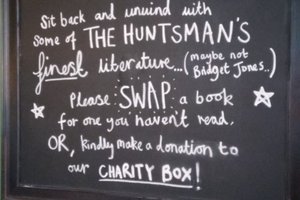 Sit back and unwind with
some of THE HUNTSMAN'S
finest literature... (maybe not
Bridget Jones..)
Please SWAP a book
for one you haven't read.
OR, kindly make a donation to
our CHARITY BOX!